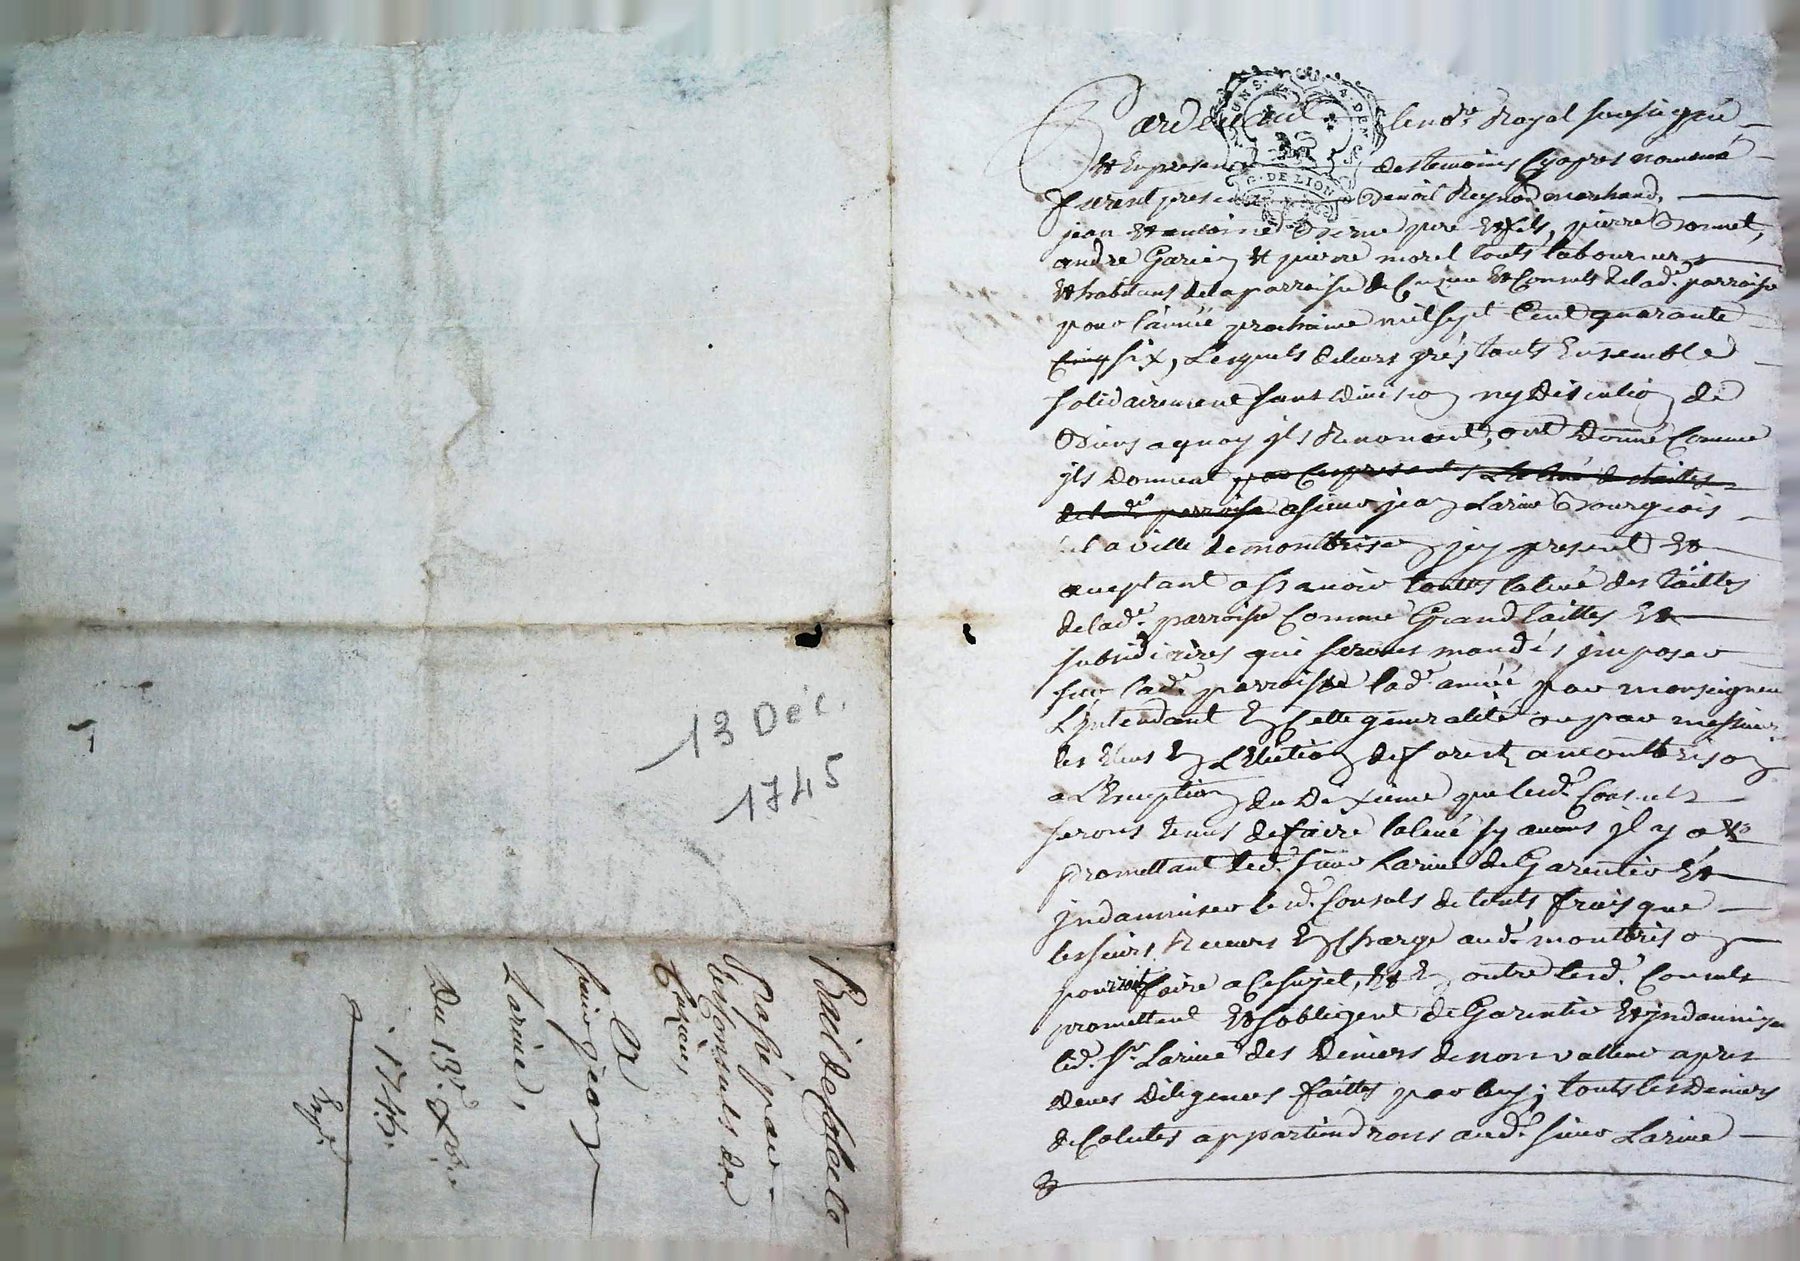 13 Déc.
1745
Bail de Colecte
Passé par
les Consuls de
Cuzieu
A
sieur jean
Larive,
Du 13e xbre
1745.
Expd.
2 SUNS. 4 DEN.
G. DE LION
Pardevant le nore Royal soussigné
Et En presence des temoins Cyapres nommés
furent presens Benoit Reynod marchand,
jean Et antoine père Et fils, pierre Bonnet,
andré Et pierre morel touts laboureurs
Et habitans de la parroisse de Cuzieu Et Consuls de lade parroisse
pour l'année prochaine mil sept Cent quarante
Cinq six, Lesquels de leurs grés touts Ensemble
solidairement sans division ny discution de
Biens a quoy ils Renoncent, ont Donné Comme
ils Donnent par Ces presentes La levé de tailles
de lade parroisse a sieur jean Larive Bourgeois
de la ville de montbrison icy present Et
aceptant assavoir touttes la levé des tailles
de lade parroisse Comme Grand tailles Et
subsidiaires qui seront mandés imposer
sur lade parroisse lade année par monseigneur
L'intendant En Cette generalité ou par messieurs
les Elus En L'Election de forest a montbrison
a L'Exception du Dixieme que lesd. Consuls
serons tenus de faire la levé sy aucuns il y a Et
promettant led. sieur Larive de Garentir Et
indamniser lesd. Consuls de touts frais que
les sieurs Receveurs En Charge aud. montbrison
pourroit faire a Ce sujet, Et En outre lesd. Consuls
promettent Et s'obligent de Garentir Et indamniser
led. Sr Larive des Deniers de non valleur apres
deues Diligences faittes par luy; touts les Deniers
de Colectes appartiendrons aud. sieur Larive